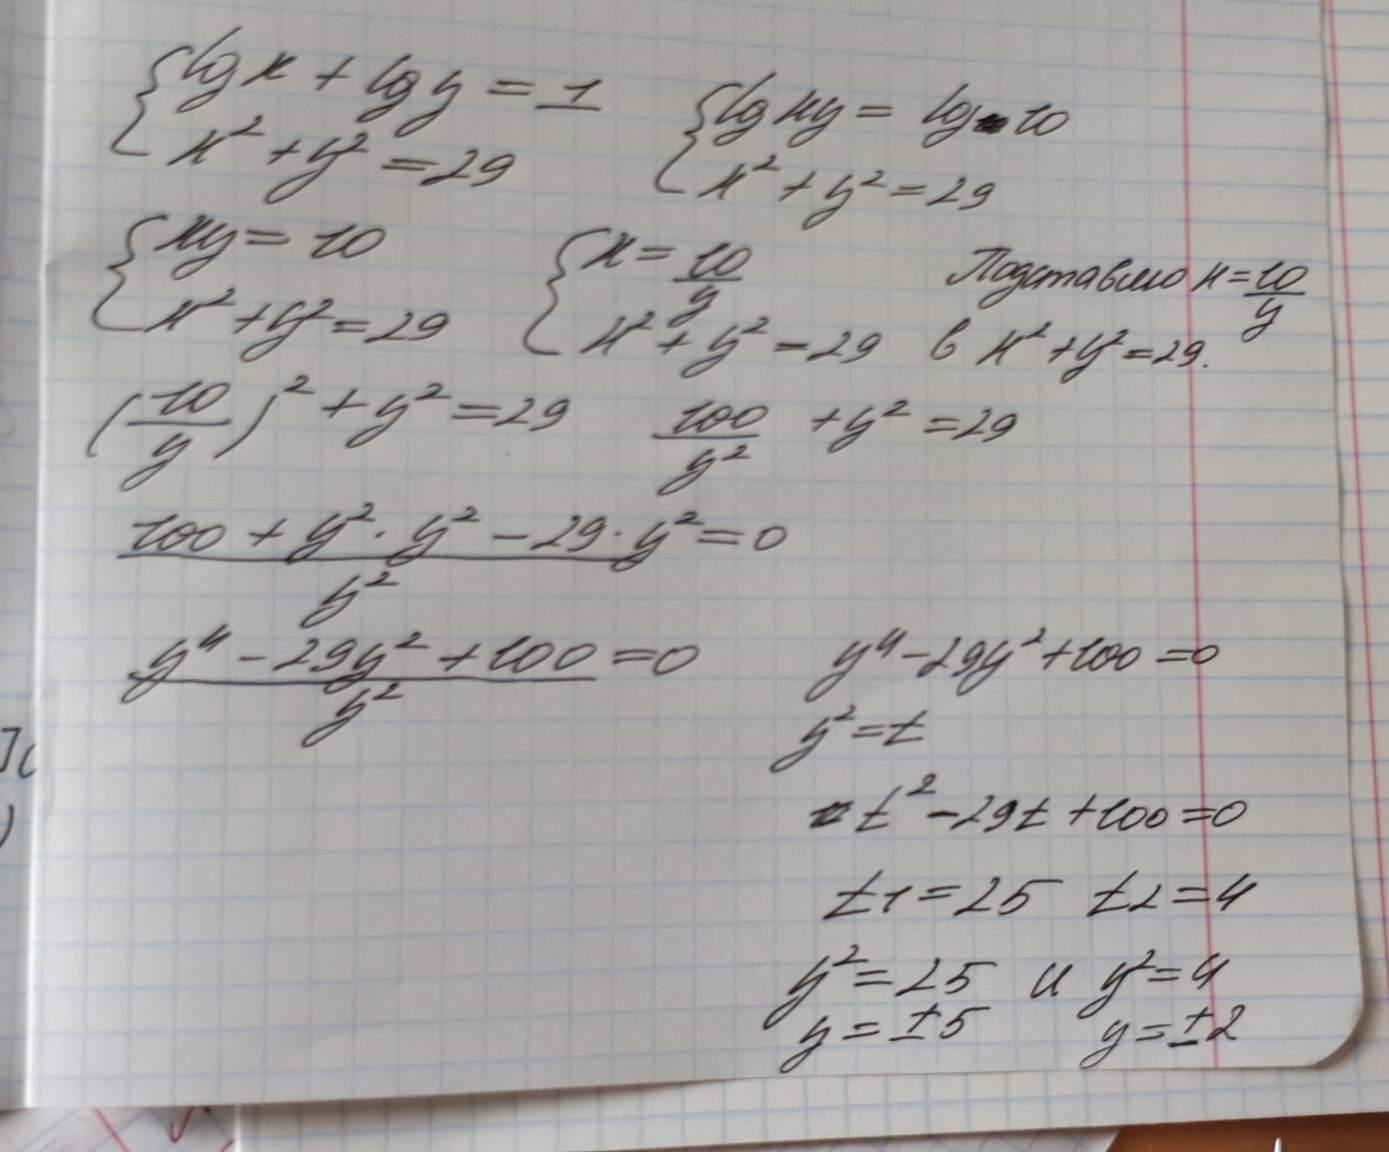 {lg x + lg y = 1
x² + y² = 29
{lg xy = lg 10
x² + y² = 29
{xy = 10
x² + y² = 29
{x = 10/y
x² + y² = 29
Подставлю x = 10/y
в x² + y² = 29.
(10/y)² + y² = 29
100/y² + y² = 29
(100 + y² · y² − 29 · y²)/y² = 0
(y⁴ − 29y² + 100)/y² = 0
y⁴ − 29y² + 100 = 0
y² = t
t² − 29t + 100 = 0
t1 = 25 t2 = 4
y² = 25 и y² = 4
y = ±5 y = ±2